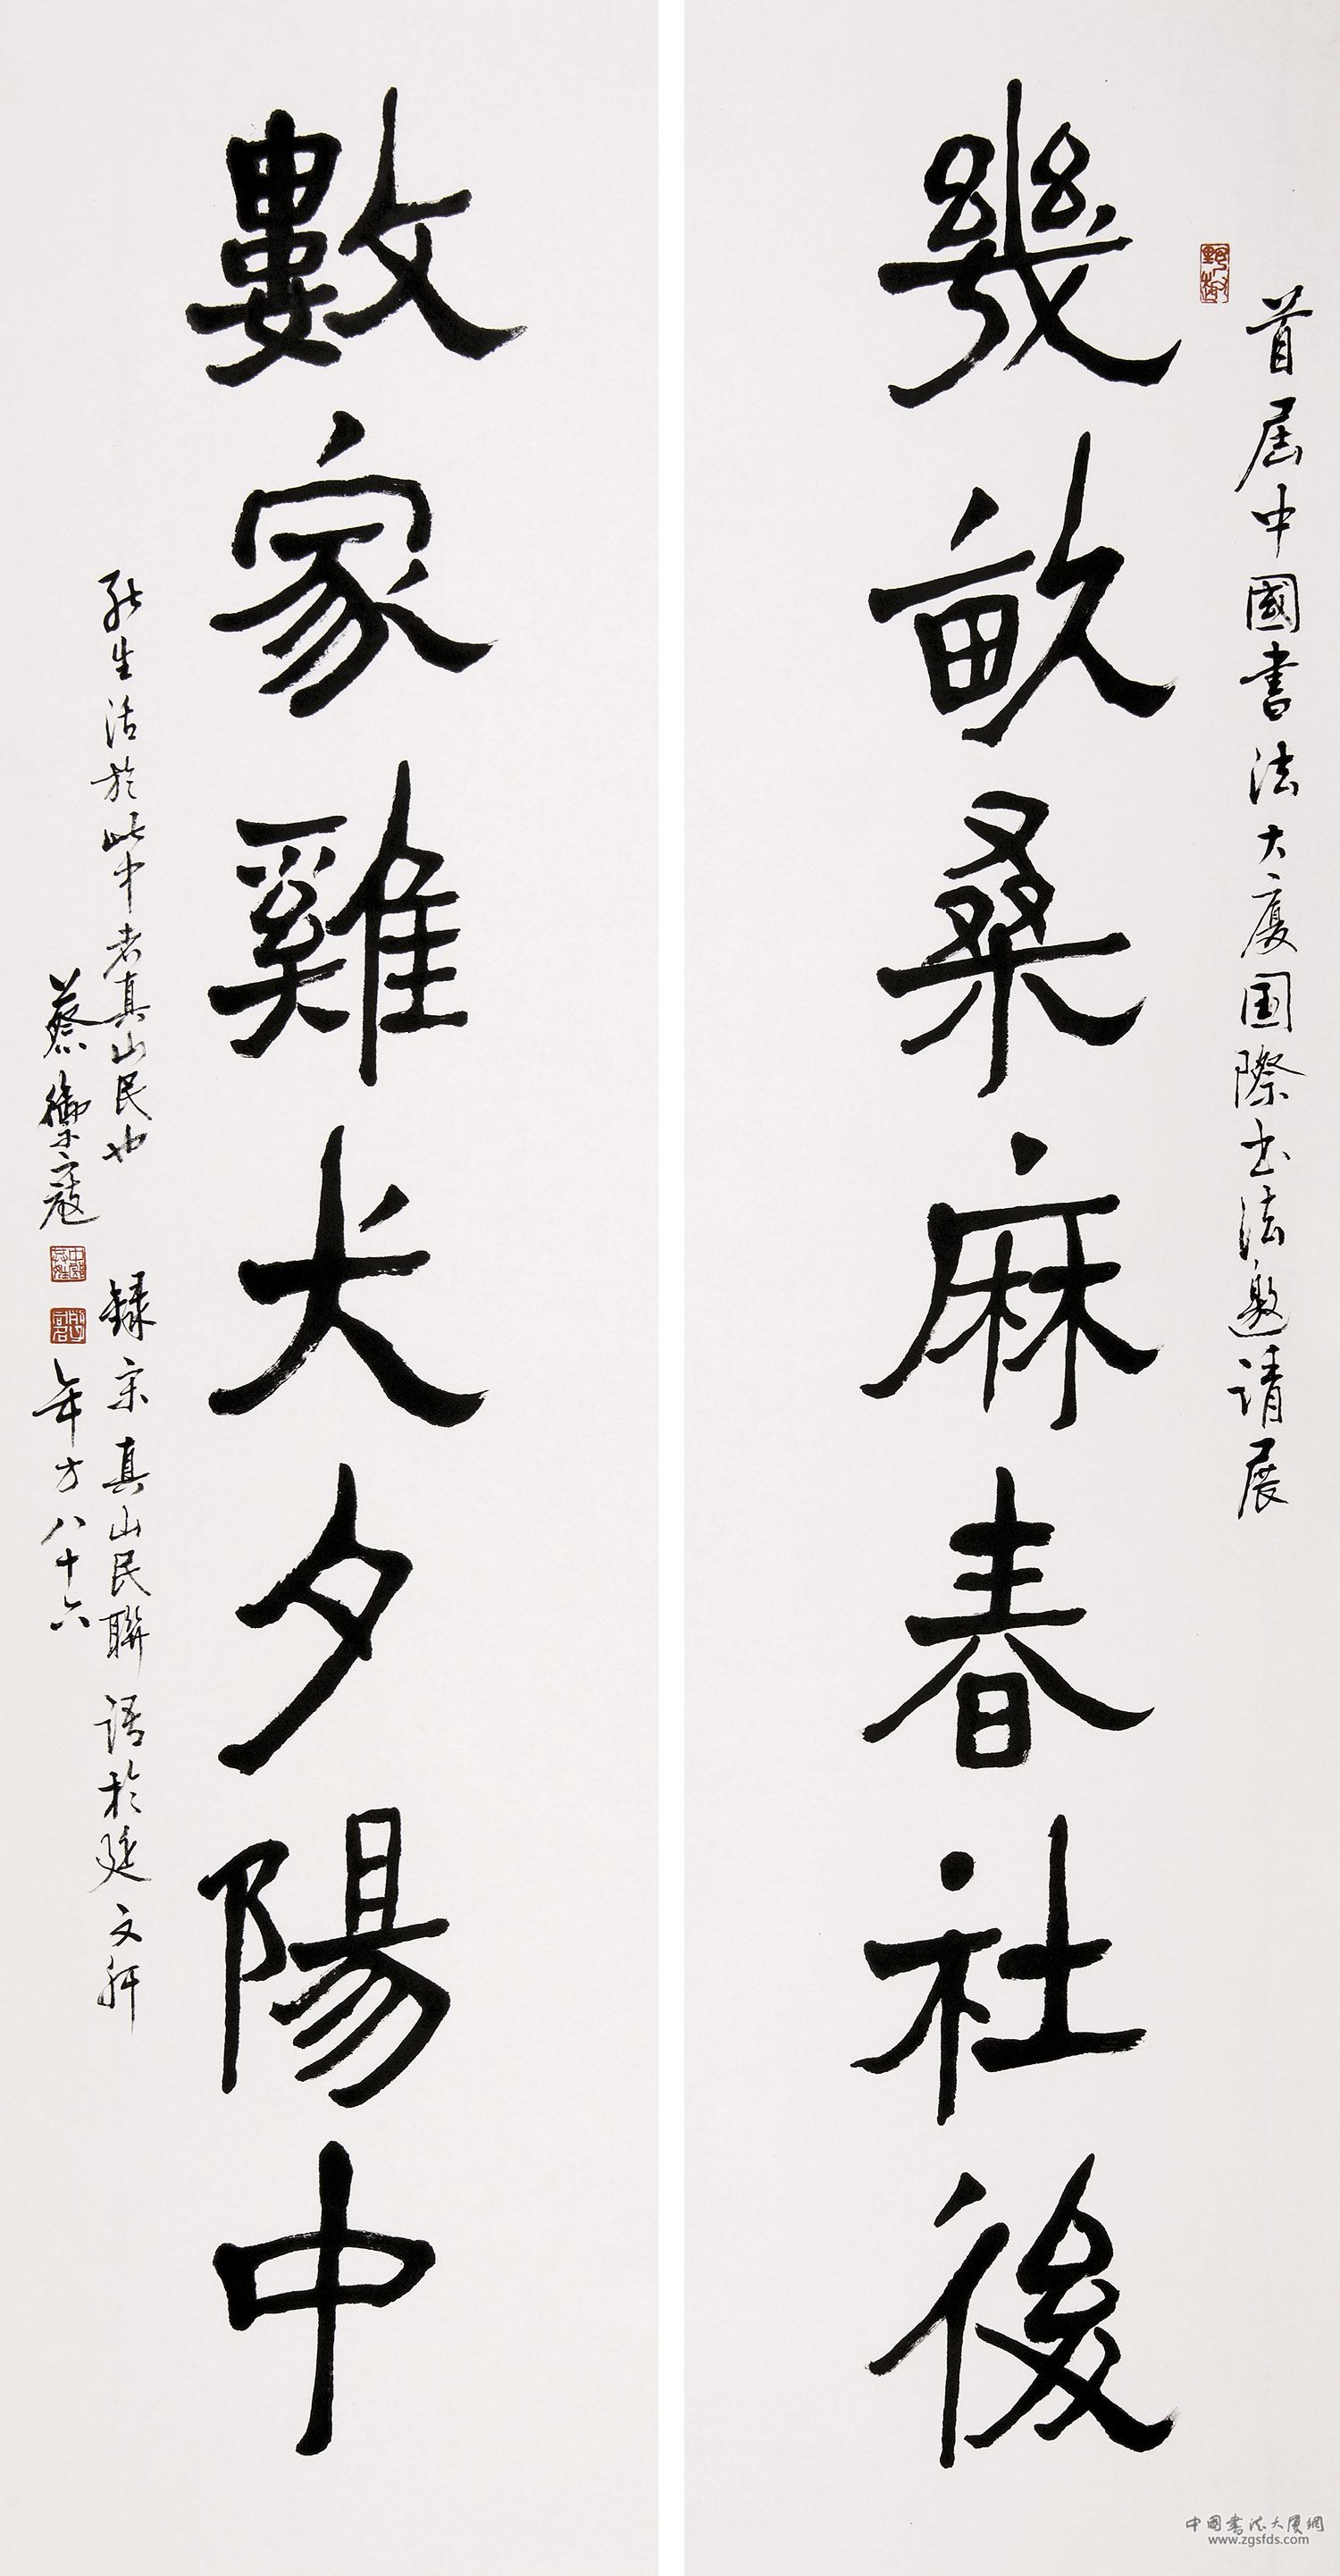 首届中國書法大廈国際书法邀請展
幾畝桑麻春社後
數家雞犬夕陽中
能生活於此中者真山民也
錄宋真山民聯語於延文軒
蔡禦寇
年方八十六
中国書法大厦網
www.zgsfds.com